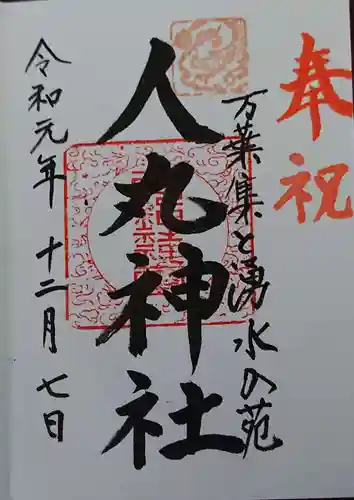 奉祝
万葉集と湧水の苑
人丸神社
令和元年十二月七日